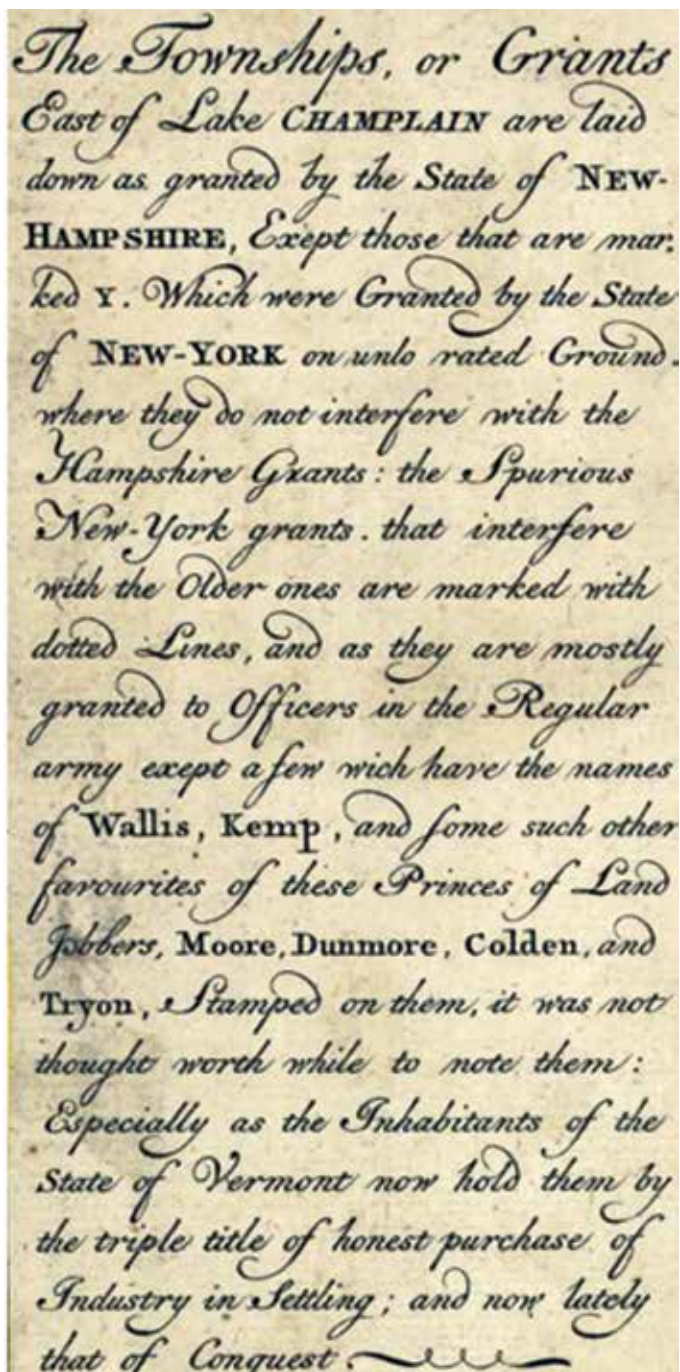 The Townships, or Grants
East of Lake CHAMPLAIN are laid
down as granted by the State of NEW-
HAMPSHIRE, Exept those that are mar.
ked Y. Which were Granted by the State
of NEW-YORK on unlo rated Ground.
where they do not interfere with the
Hampshire Grants: the Spurious
New-York grants. that interfere
with the Older ones are marked with
dotted Lines, and as they are mostly
granted to Officers in the Regular
army exept a few wich have the names
of Wallis, Kemp, and some such other
favourites of these Princes of Land
Jobbers, Moore, Dunmore, Colden, and
Tryon, Stamped on them, it was not
thought worth while to note them:
Especially as the Inhabitants of the
State of Vermont now hold them by
the triple title of honest purchase of
Industry in Settling; and now lately
that of Conquest.